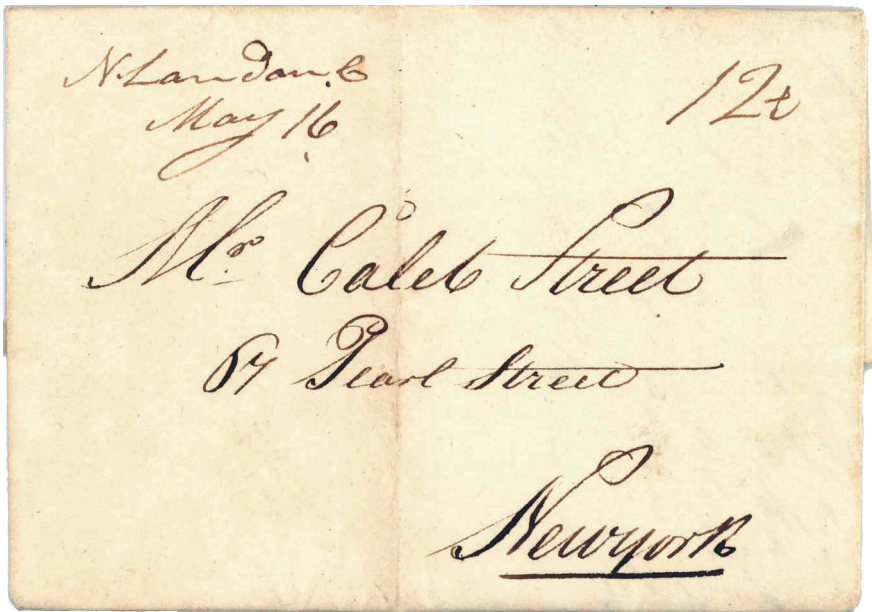 N. Landon. C
May 16
12½
Mr. Caleb Street
67 Pearl Street
Newyork